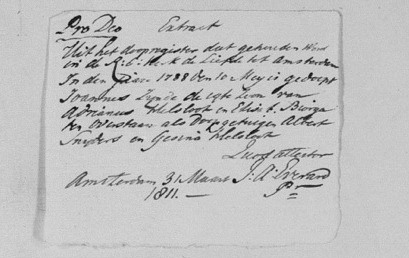 Pro Deo Extract
Uit het doopregister dat gehouden werd
in de R: C: Kerk de Liefde tot amsterdam
In den Jare 1788 den 10 Mey is gedoopt
Joannes Zynde de egte Zoon van
Adrianus Helsloot en Elis: t.
overstaan als Doopgetuigen Albert
Snyders en Gesina Helsloot
Quod attestor
Amsterdam 31 Maart J. A: Everard
1811. — Pr